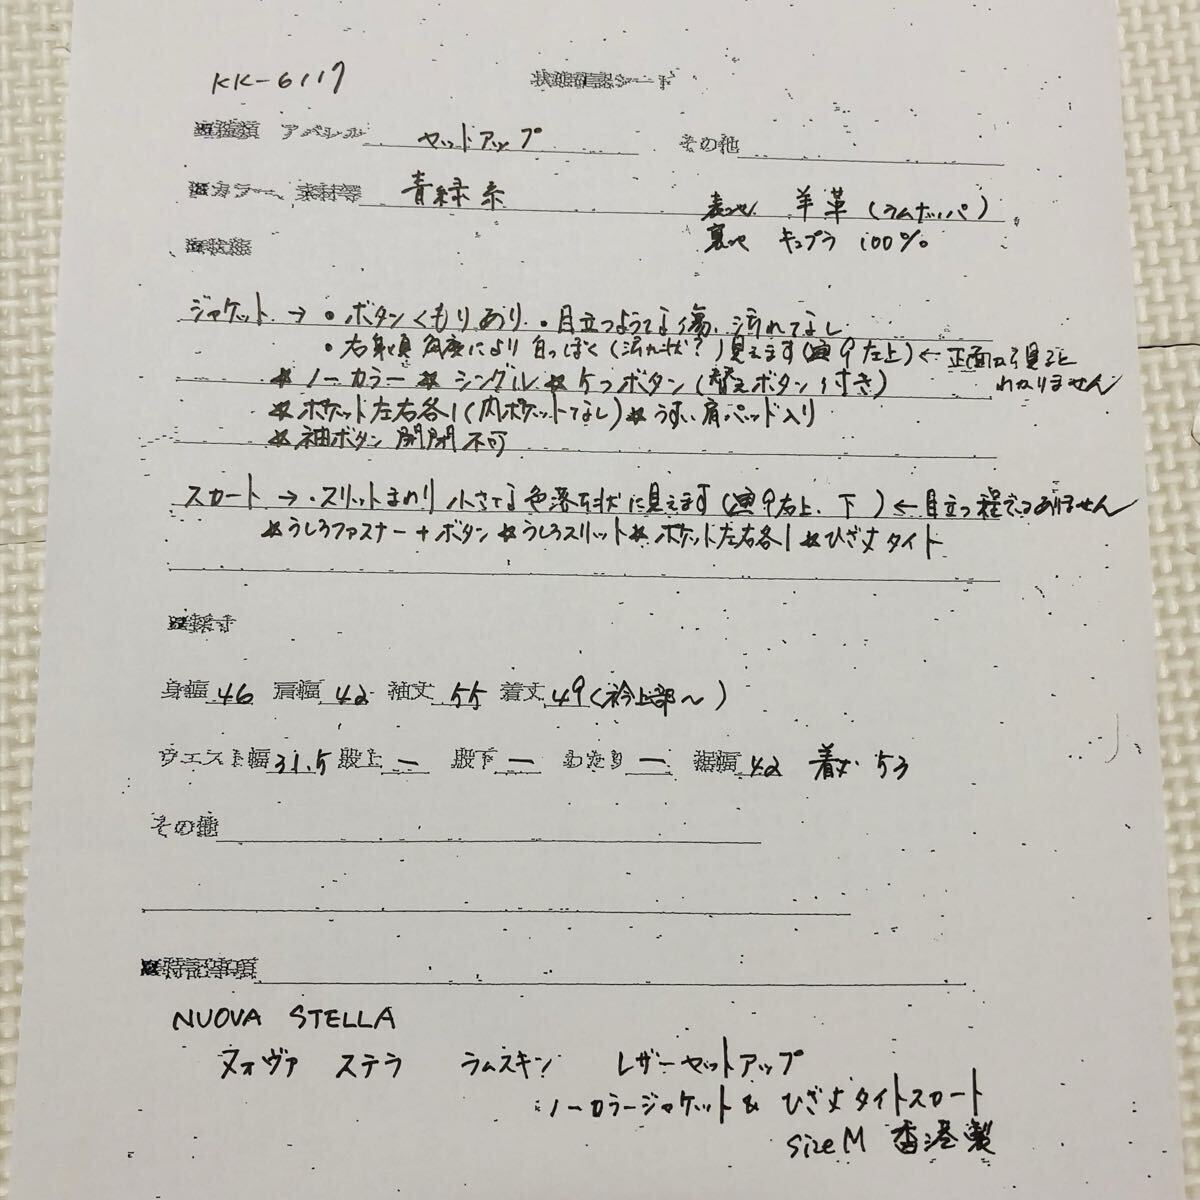 KK-6117 状態確認シート
※種類 アパレル セットアップ その他
※カラー、素材等 青緑系 表つせ 羊革(ラムナッパ)
裏つせ キュプラ 100%
※状態
ジャケット → ・ボタンくもりあり ・目立つような傷、汚れなし
・右身頃 角度により白っぽく(汚れ状?)見えます(画9左上) ← 正面から見るとわかりません
☆ノーカラー ☆シングル ☆ケつボタン(替えボタン1付き)
☆ポケット左右各1(内ポケットなし) ☆うすい肩パッド入り
☆袖ボタン開閉不可
スカート → ・スリットまわり 小さな色落ち状に見えます(画9右上、下) ← 目立つ程ではありません
☆うしろファスナー+ボタン ☆うしろスリット ☆ポケット左右各1 ☆ひざ丈タイト
※採寸
身幅 46 肩幅 42 袖丈 55 着丈 49(衿上部〜)
ウエスト幅 31.5 股上 ー 股下 ー わたり ー 裾幅 42 着丈 53
その他
※特記事項
NUOVA STELLA
ヌォヴァ ステラ ラムスキン レザーセットアップ
ノーカラージャケット & ひざ丈タイトスカート
size M 香港製